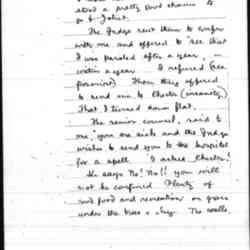 stood a pretty good chance of
go to Joliet.
The Judge sent them to confer
with me and offered to "see that
I was paroled after a year, or
within a year. I refused (see
Then they offered
to send me to Chester (insanity)
That I turned down flat.
The senior counsel, said to
me, "you are sick and the Judge
wishes to send you to the hospital
for a spell. I asked Chester?
He says No! No!! you will
not be confined. Plenty of
good food and recreation on grass
under the trees & hay. No walls,